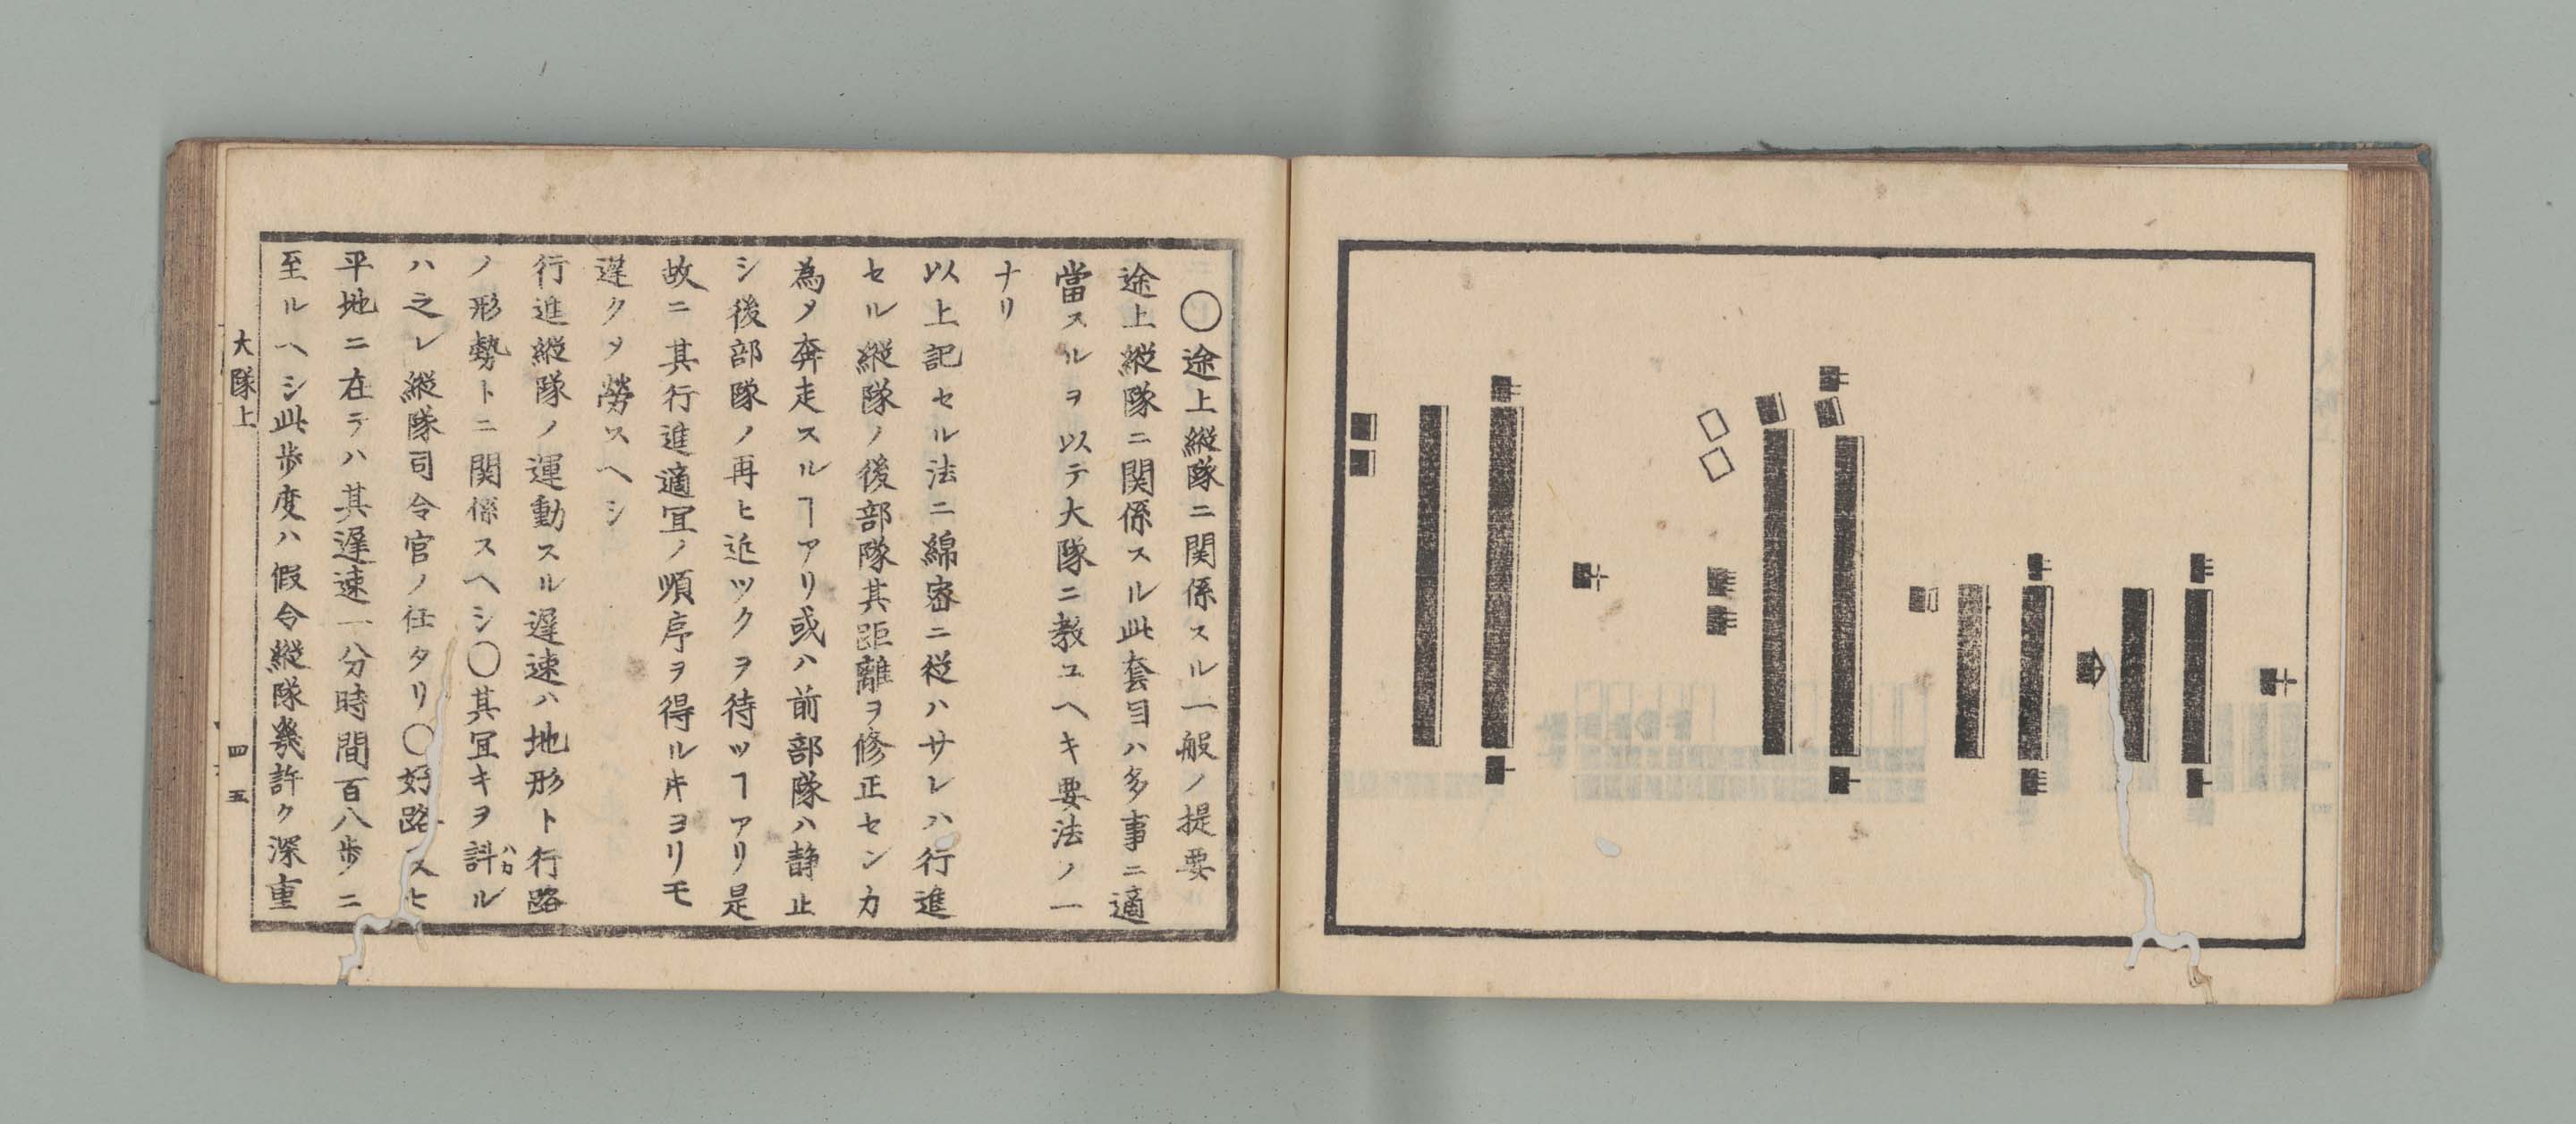 ◯途上縦隊ニ関係スル一般ノ提要
途上縦隊ニ関係スル此套目ハ多事ニ適
當スルヲ以テ大隊ニ教ユヘキ要法ノ一
ナリ
以上記セル法ニ綿密ニ従ハサレハ行進
セル縦隊ノ後部隊其距離ヲ修正センカ
為メ奔走スルヿアリ或ハ前部隊ハ静止
シ後部隊ノ再ヒ近ツクヲ待ツヿアリ是
故ニ其行進適冝ノ順序ヲ得ルヰヨリモ
遅クヲ勞スヘシ
行進縦隊ノ運動スル遅速ハ地形ト行路
ノ形勢トニ関係スヘシ◯其冝キヲ計ハカル
ハ之レ縦隊司令官ノ任タリ◯好路ヒ
平地ニ在テハ其遅速一分時間百八歩ニ
至ルヘシ此歩度ハ假令縦隊幾許ク深重
大隊上
四五